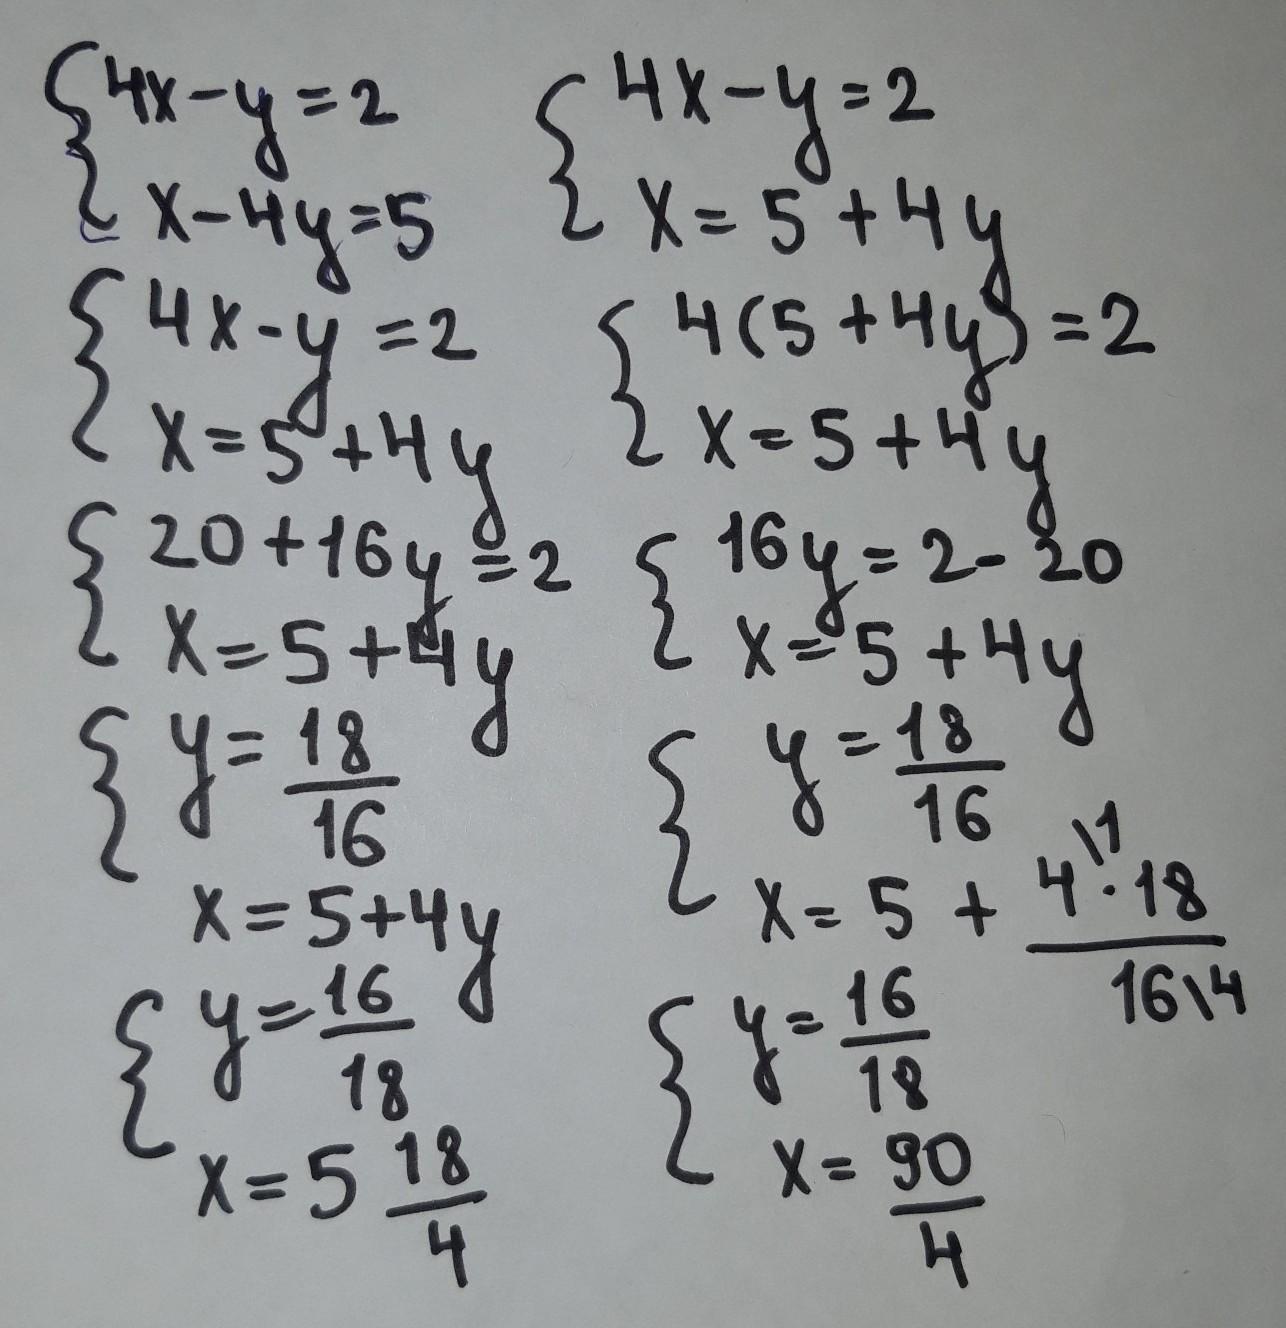 { 4x-y=2
x-4y=5
{ 4x-y=2
x=5+4y
{ 4x-y=2
x=5+4y
{ 4(5+4y)=2
x=5+4y
{ 20+16y=2
x=5+4y
{ 16y=2-20
x=5+4y
{ y= 18/16
x=5+4y
{ y= 18/16
x=5+ 4\1·18/16\4
{ y= 16/18
x=5 18/4
{ y= 16/18
x= 90/4